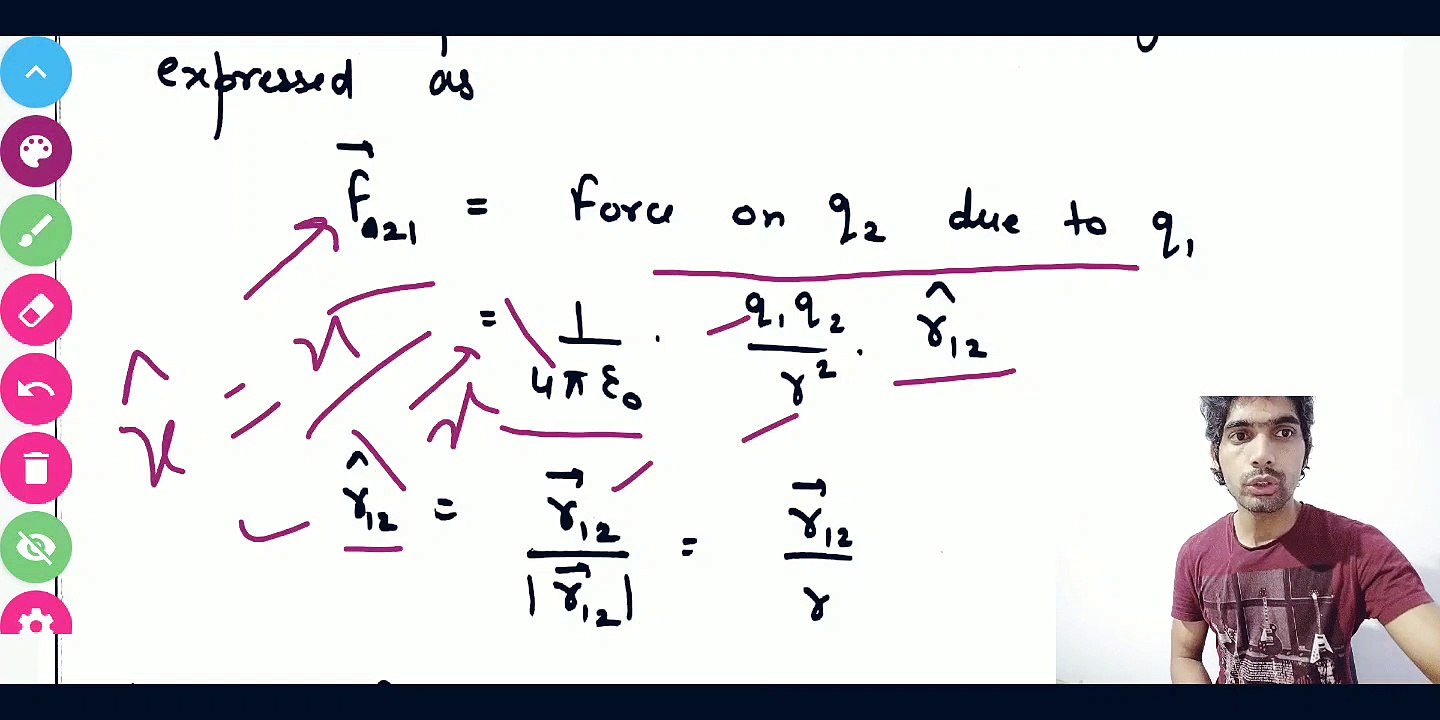 expressed as
→F₂₁ = Force on q₂ due to q₁
= 1/4πε₀ · q₁q₂/r² · r̂₁₂
r̂₁₂ = →r₁₂/|→r₁₂| = →r₁₂/r